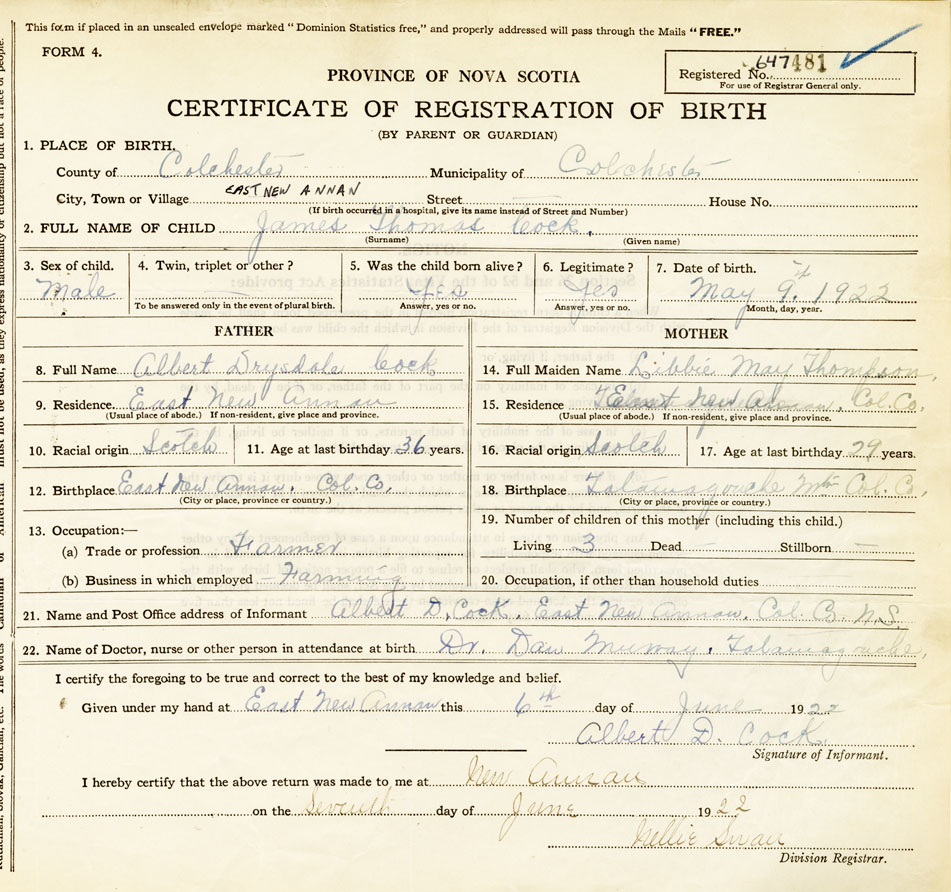 This form if placed in an unsealed envelope marked "Dominion Statistics free," and properly addressed will pass through the Mails "FREE."
FORM 4.
647481
Registered No.
For use of Registrar General only.
PROVINCE OF NOVA SCOTIA
CERTIFICATE OF REGISTRATION OF BIRTH
(BY PARENT OR GUARDIAN)
1. PLACE OF BIRTH.
County of Colchester Municipality of Colchester
City, Town or Village EAST NEW ANNAN Street House No.
(If birth occurred in a hospital, give its name instead of Street and Number)
2. FULL NAME OF CHILD James Thomas Cock.
(Surname) (Given name)
3. Sex of child. 4. Twin, triplet or other? 5. Was the child born alive? 6. Legitimate? 7. Date of birth.
Male Yes Yes May 9th 1922
To be answered only in the event of plural birth. Answer, yes or no. Answer, yes or no. Month, day, year.
FATHER
8. Full Name Albert Drysdale Cock
9. Residence East New Annan
(Usual place of abode.) If non-resident, give place and province.
10. Racial origin Scotch 11. Age at last birthday 36 years.
12. Birthplace East New Annan. Col. Co.
(City or place, province or country.)
13. Occupation:—
(a) Trade or profession Farmer
(b) Business in which employed Farming
MOTHER
14. Full Maiden Name Libbie May Thompson
15. Residence New Col. Co.
(Usual place of abode.) If non-resident, give place and province.
16. Racial origin Scotch 17. Age at last birthday 29 years.
18. Birthplace Tatamagouche Mtn Col. Co.
(City or place, province or country.)
19. Number of children of this mother (including this child.)
Living 3 Dead — Stillborn —
20. Occupation, if other than household duties
21. Name and Post Office address of Informant Albert D. Cock. East New Annan. Col. Co. N.S.
22. Name of Doctor, nurse or other person in attendance at birth Dr. Dan Murray. Tatamagouche.
I certify the foregoing to be true and correct to the best of my knowledge and belief.
Given under my hand at East New Annan this 6th day of June 1922
Albert D. Cock
Signature of Informant.
I hereby certify that the above return was made to me at New Annan
on the Seventh day of June 1922
Nellie Swan
Division Registrar.